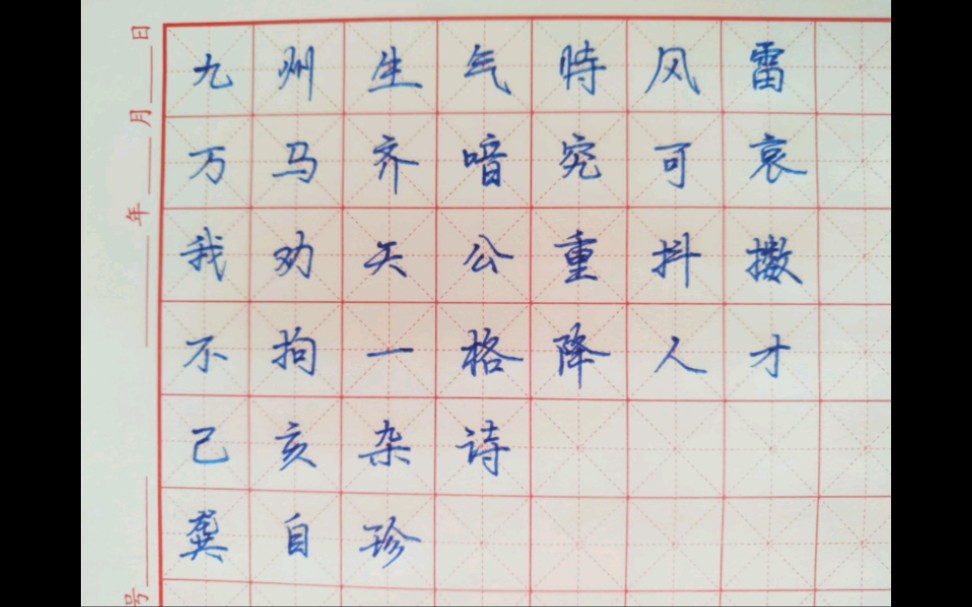 九州生气時风雷
万马齐喑究可哀
我劝天公重抖擞
不拘一格降人才
己亥杂诗
龚自珍
年 月 日
号